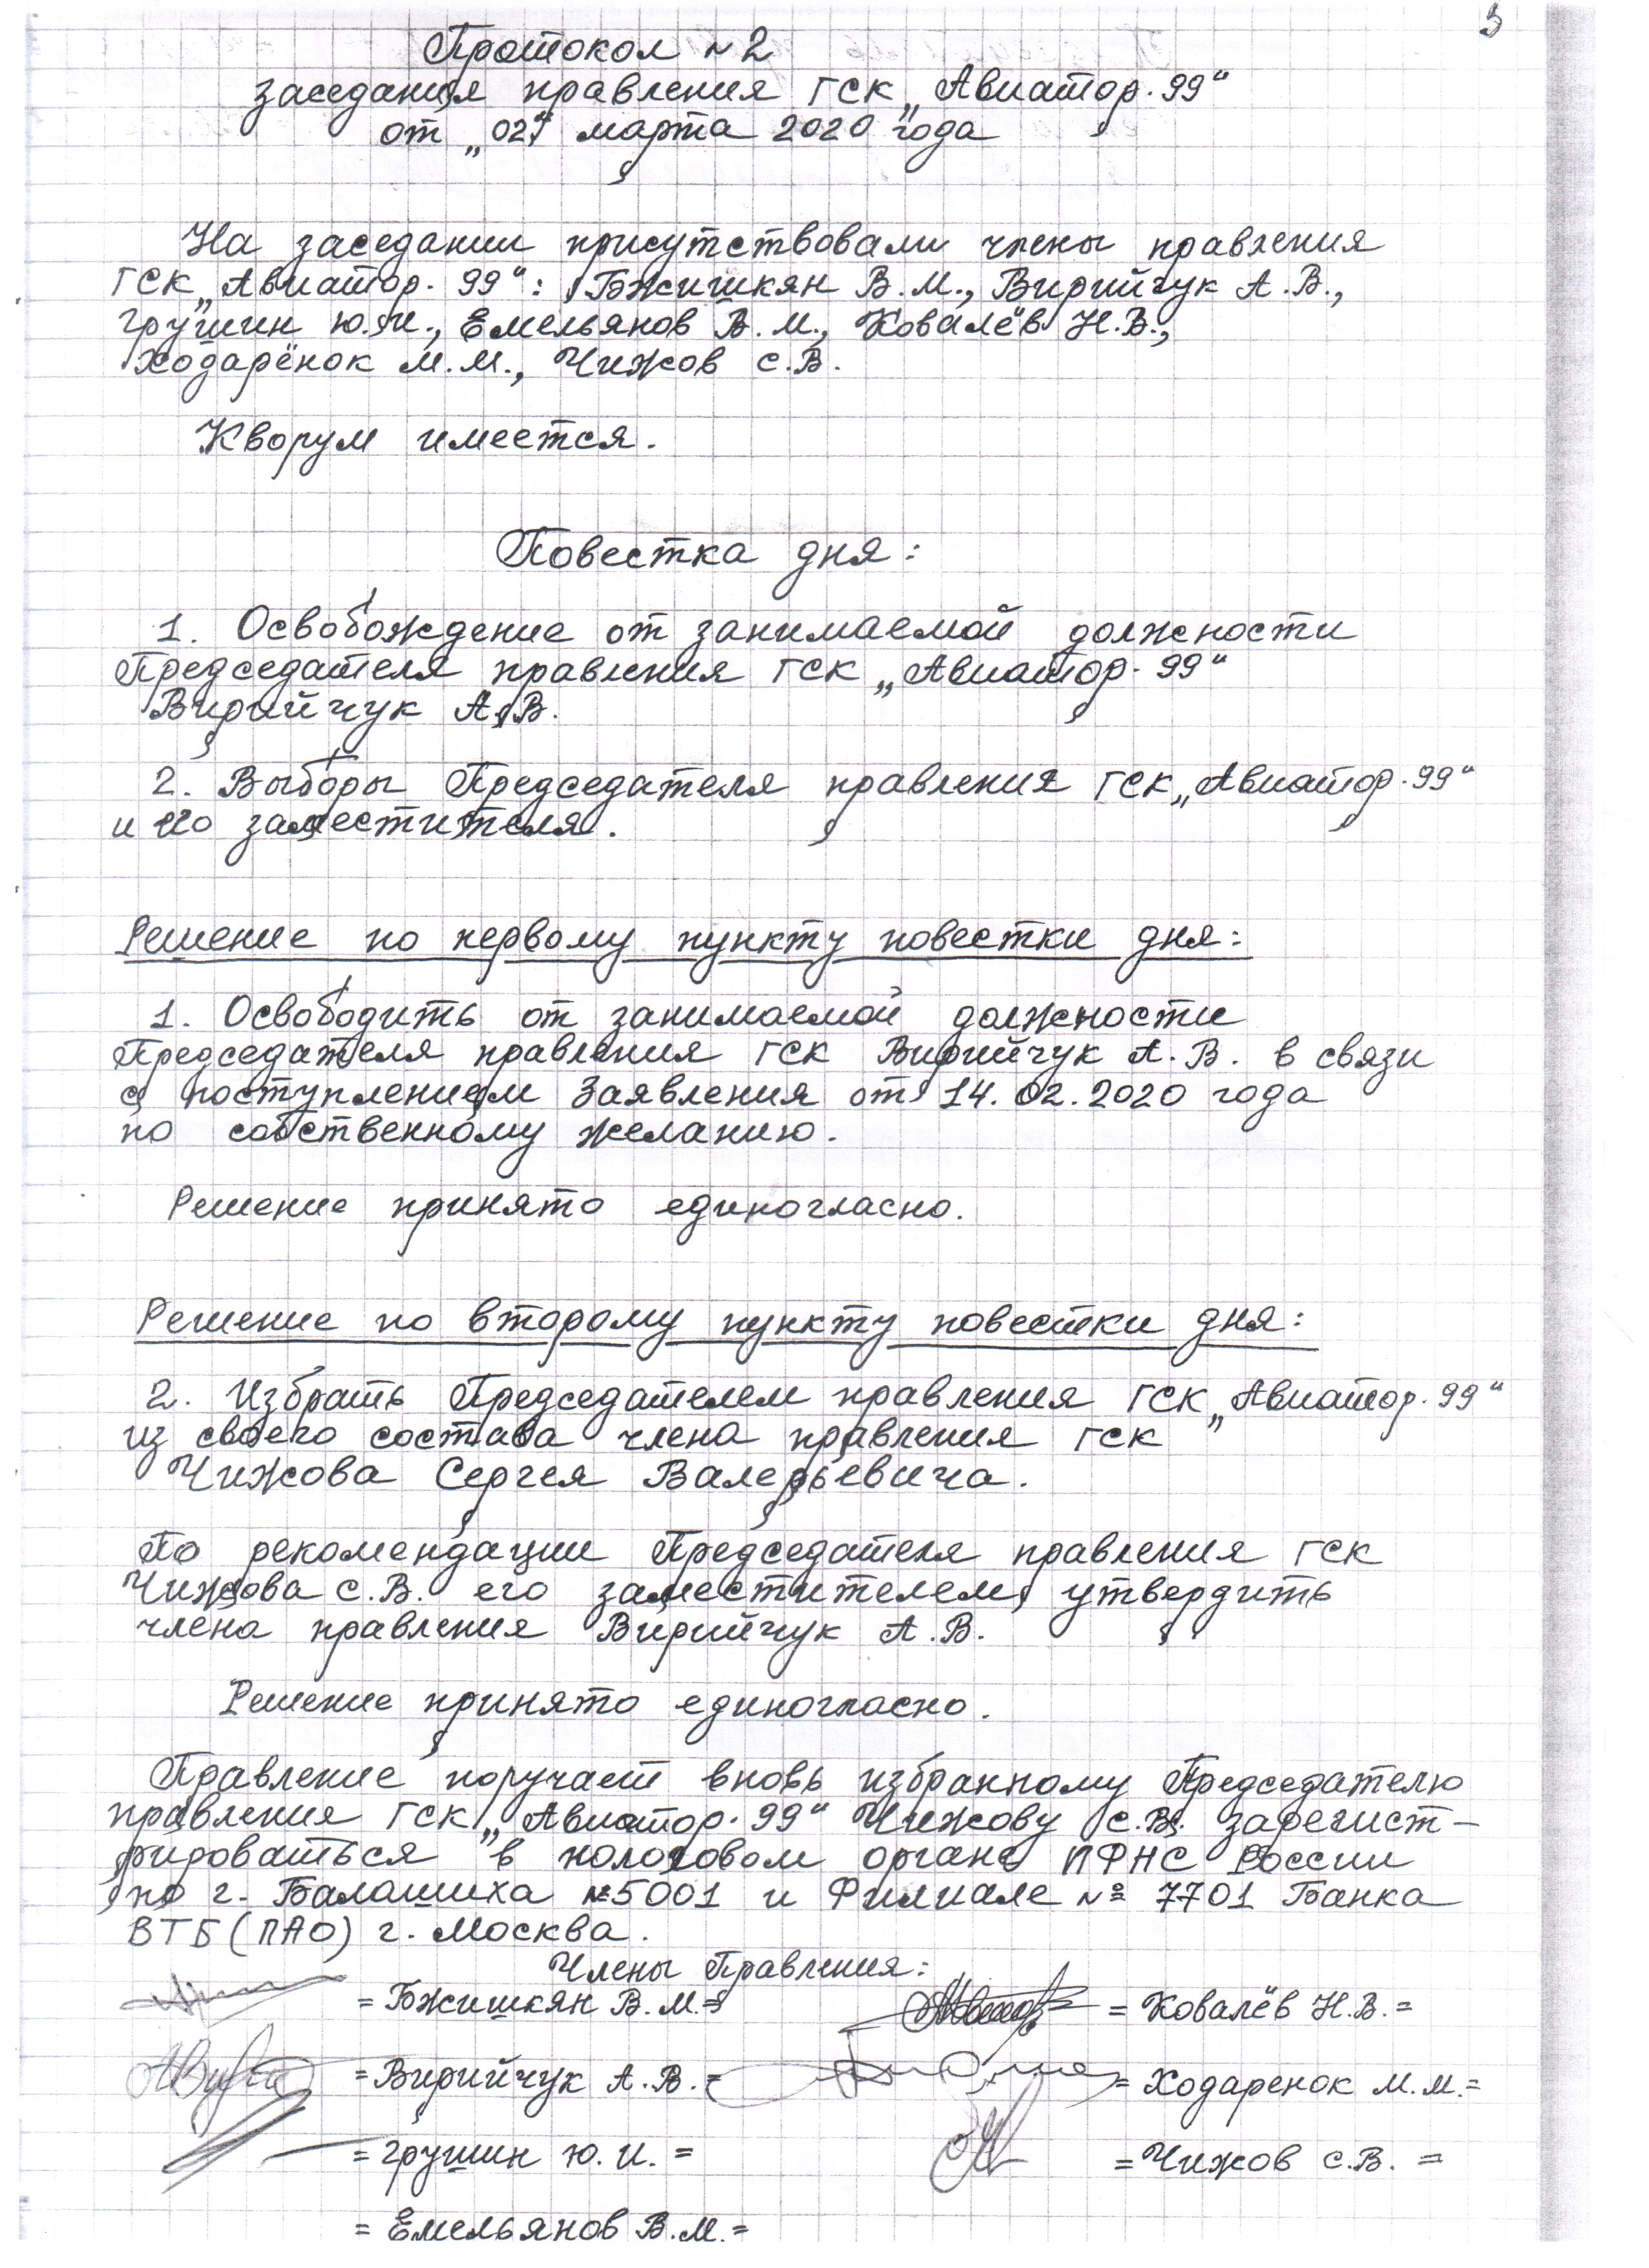 3
Протокол №2
заседания правления ГСК „Авиатор-99“
от „02“ марта 2020 года
На заседании присутствовали члены правления
ГСК „Авиатор-99“: Бжишкян В.М., Вирийчук А.В.,
Грушин Ю.И., Емельянов В.М., Ковалёв Н.В.,
Ходарёнок М.М., Чижов С.В.
Кворум имеется.
Повестка дня:
1. Освобождение от занимаемой должности
Председателя правления ГСК „Авиатор-99“
Вирийчук А.В.
2. Выборы Председателя правления ГСК „Авиатор-99“
и его заместителя.
Решение по первому пункту повестки дня:
1. Освободить от занимаемой должности
Председателя правления ГСК Вирийчук А.В. в связи
с поступлением Заявления от 14.02.2020 года
по собственному желанию.
Решение принято единогласно.
Решение по второму пункту повестки дня:
2. Избрать Председателем правления ГСК „Авиатор-99“
из своего состава члена правления ГСК
Чижова Сергея Валерьевича.
По рекомендации Председателя правления ГСК
Чижова С.В. его заместителем утвердить
члена правления Вирийчук А.В.
Решение принято единогласно.
Правление поручает вновь избранному Председателю
правления ГСК „Авиатор-99“ Чижову С.В. зарегист-
рироваться в налоговом органе ИФНС России
по г. Балашиха №5001 и Филиале № 7701 Банка
ВТБ (ПАО) г. Москва.
Члены Правления:
= Бжишкян В.М. = = Ковалёв Н.В. =
= Вирийчук А.В. = = Ходаренок М.М. =
= Грушин Ю.И. = = Чижов С.В. =
= Емельянов В.М. =